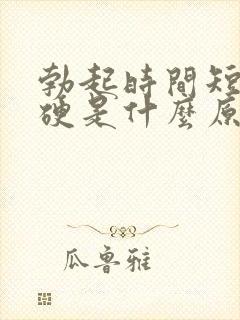 勃起時間短
硬是什麼原
瓜魯雅